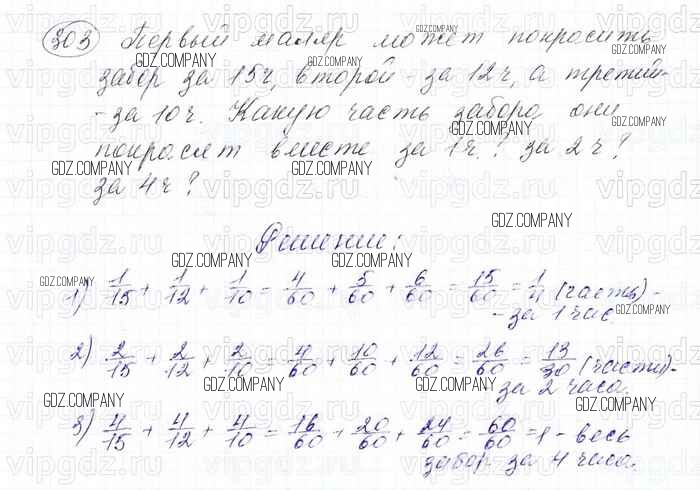 303 Первый маляр может покрасить
забор за 15ч, второй - за 12ч, а третий -
- за 10ч. Какую часть забора они
покрасят вместе за 1ч? за 2ч?
за 4ч?
Решение:
1) 1/15 + 1/12 + 1/10 = 4/60 + 5/60 + 6/60 = 15/60 = 1/4 (часть) -
- за 1 час.
2) 2/15 + 2/12 + 2/10 = 4/60 + 10/60 + 12/60 = 26/60 = 13/30 (части) -
за 2 часа.
3) 4/15 + 4/12 + 4/10 = 16/60 + 20/60 + 24/60 = 60/60 = 1 - весь
забор за 4 часа.
GDZ.COMPANY
vipgdz.ru